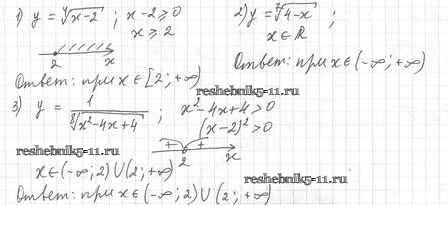 1) y = ⁴√x-2 ; x-2 ≥ 0
x ≥ 2
2 x
Ответ: при x ∈ [2; +∞)
2) y = ⁷√4-x ;
x ∈ R
Ответ: при x ∈ (-∞; +∞)
3) y = 1 / ⁸√x²-4x+4 ; x²-4x+4 > 0
(x-2)² > 0
reshebnik5-11.ru
+ +
2 x
reshebnik5-11.ru
x ∈ (-∞; 2) ∪ (2; +∞)
reshebnik5-11.ru
Ответ: при x ∈ (-∞; 2) ∪ (2; +∞)